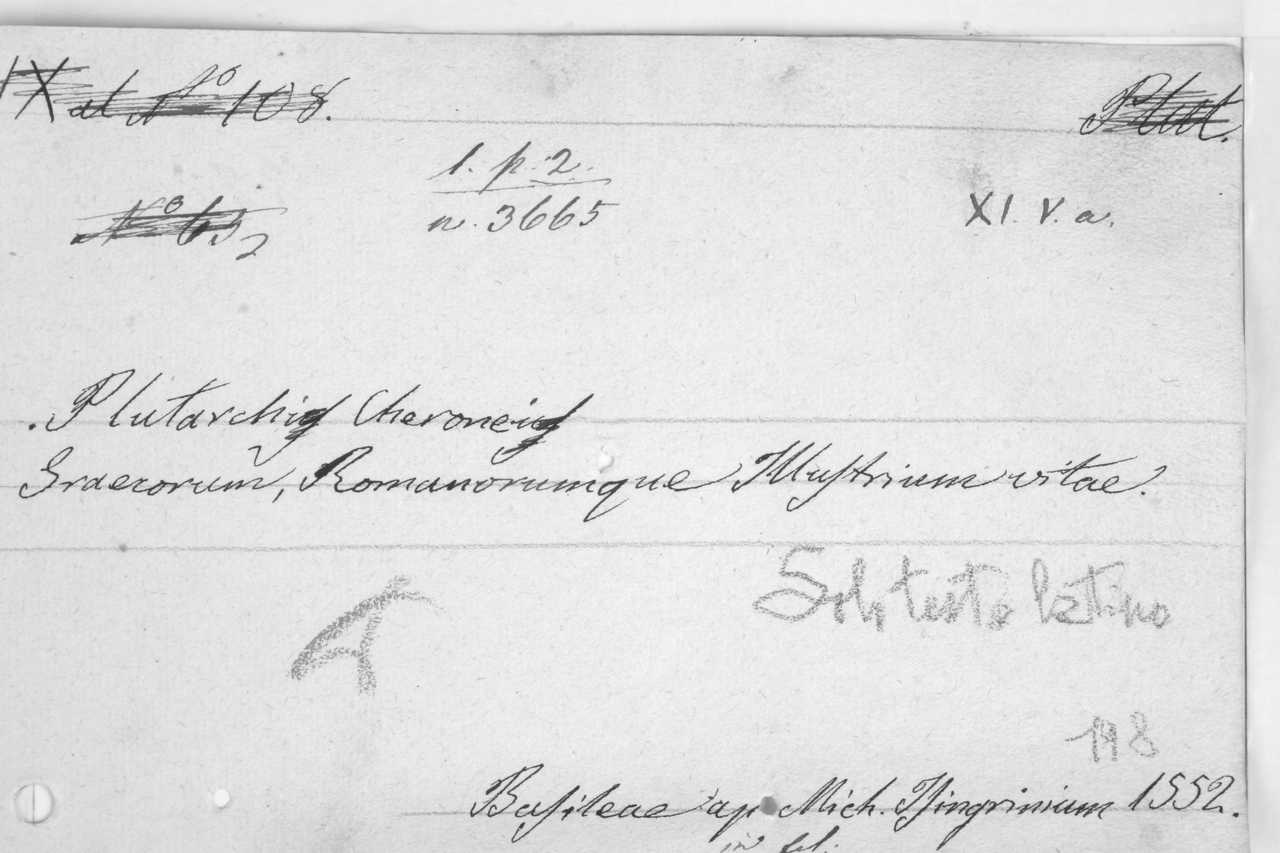 IX al Nº 108.
Plut.
l. p. 2.
Nº 65
n. 3665
XI. V. a.
Plutarchi Cheronei
Graecorum, Romanorumque Illustrium vitae.
Solo testo latino
198
Basileae ap Mich. Isingrinium 1552.
in fol.